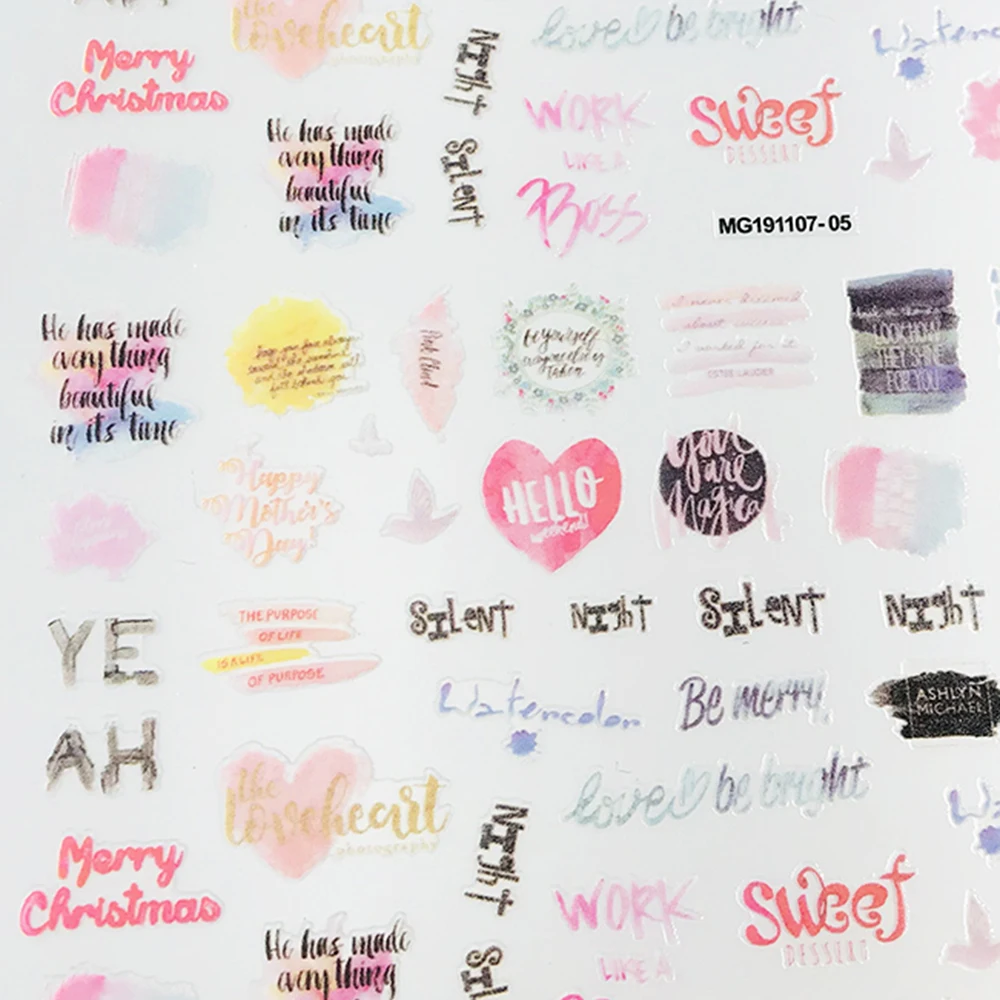 the
loveheart
photography
love be bright
Merry
Christmas
Night
WORK
LIKE A
Boss
sweet
DESSERT
He has made
everything
beautiful
in its time
Silent
MG191107-05
He has made
everything
beautiful
in its time
Pink Cloud
be yourself
everyone else is
taken
I never dreamed
about success
I worked for it
ESTEE LAUDER
LOOK HOW
THEY SHINE
FOR YOU
Happy
Mother's
Day!
HELLO
weekend!
You
are
Magical
YE
AH
THE PURPOSE
OF LIFE
IS A LIFE
OF PURPOSE
Silent
Night
Silent
Night
Watercolor
Be merry!
ASHLYN
MICHAEL
the
loveheart
photography
love be bright
Merry
Christmas
Night
WORK
LIKE A
sweet
DESSERT
He has made
everything